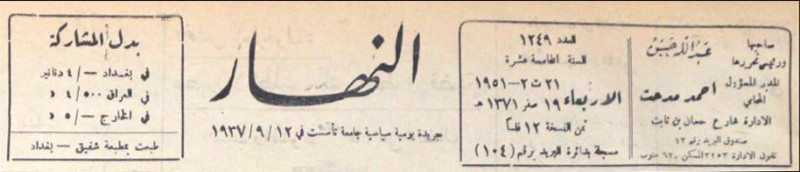 صاحبها
ورئيس تحريرها
عبد الله حسن
المدير المسؤول
المحامي
احمد مدحت
الادارة شارع حسان بن ثابت
صندوق البريد رقم ١٣
تلفون الادارة ٣٢٥٣ المسكن ٦٢٠ جنوب
العدد ١٢٤٩
السنة الخامسة عشرة
الاربعاء
٢١ ت ٢ - ١٩٥١
١٩ صفر ١٣٧١ هـ
ثمن النسخة ١٢ فلساً
مسجلة بدائرة البريد برقم (١٠٤)
النهار
جريدة يومية سياسية جامعة تأسست في ١٩٣٧/٩/١٢
بدل المشاركة
في بغداد —/٤ دنانير
في العراق ٤/٥٠٠ د
في الخارج —/٥ د
طبعت بمطبعة شفيق — بغداد